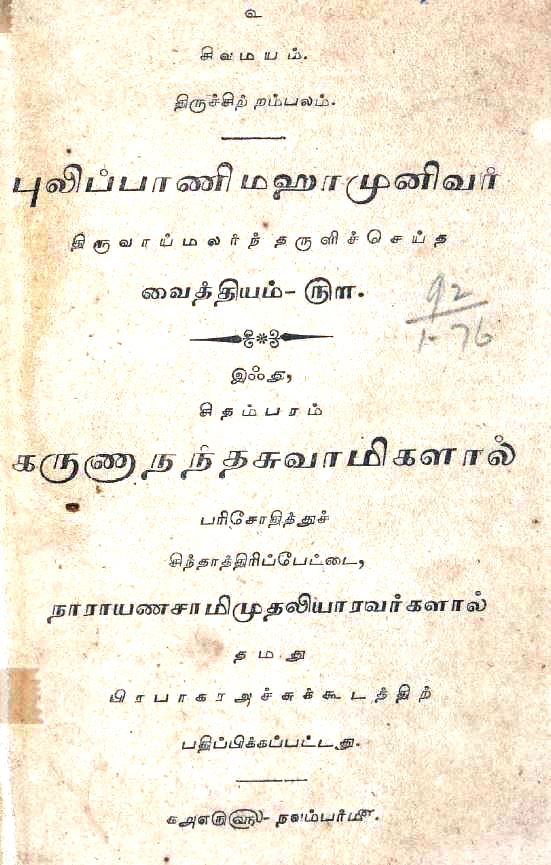 உ
சிவமயம்.
திருச்சிற் றம்பலம்.
புலிப்பாணி மஹாமுனிவர்
திருவாய்மலர்ந் தருளிச்செய்த
வைத்தியம் - ௫௱.
92
1-76
இஃது,
சிதம்பரம்
கருணாநந்தசுவாமிகளால்
பரிசோதித்துச்
சிந்தாத்திரிப்பேட்டை,
நாராயணசாமிமுதலியாரவர்களால்
தமது
பிரபாகரஅச்சுக்கூடத்திற்
பதிப்பிக்கப்பட்டது.
௧௮௭௫௵ - நவம்பர்௴.